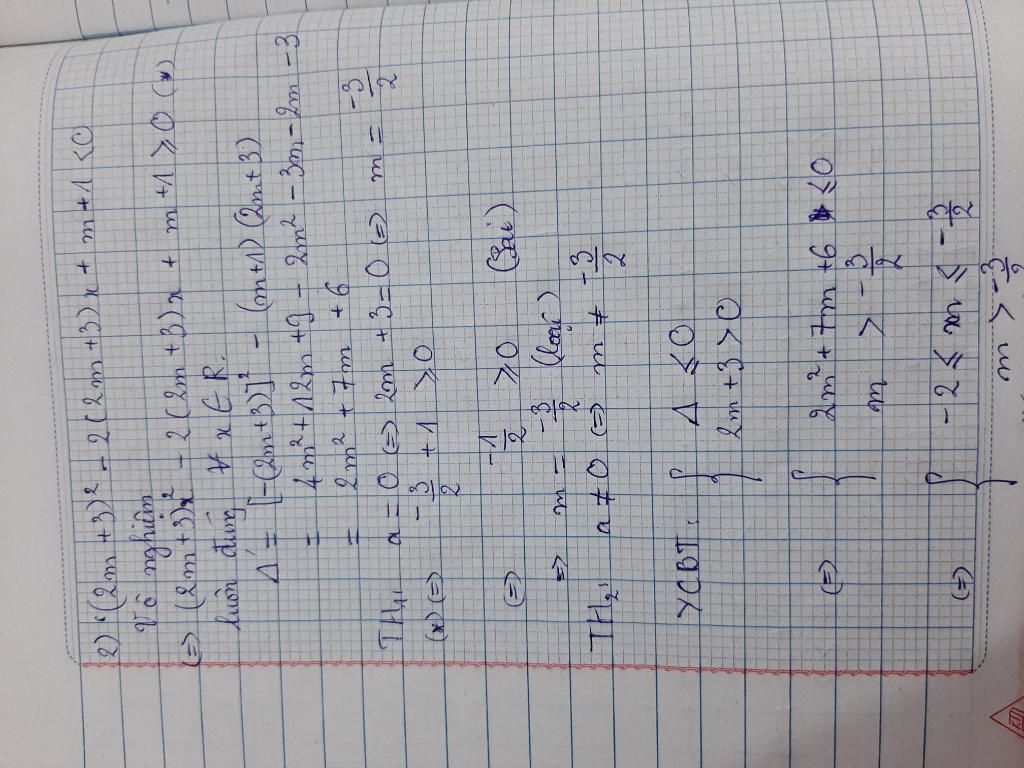 2) (2m+3)² - 2(2m+3)x + m+1 < 0
Vô nghiệm
(=) (2m+3)x² - 2(2m+3)x + m+1 ⩾ 0 (*)
luôn đúng ∀ x ∈ R.
Δ' = [-(2m+3)]² - (m+1)(2m+3)
= 4m² + 12m + 9 - 2m² - 3m - 2m - 3
= 2m² + 7m + 6
TH1: a = 0 (=) 2m + 3 = 0 (=) m = -3/2
(*) (=) -3/2 + 1 ⩾ 0
(=) -1/2 ⩾ 0 (Sai)
=> m = -3/2 (loại)
TH2: a ≠ 0 (=) m ≠ -3/2
YCBT: { Δ' ≤ 0
2m+3 > 0
(=) { 2m² + 7m + 6 ≤ 0
m > -3/2
(=) { -2 ≤ m ≤ -3/2
m > -3/2